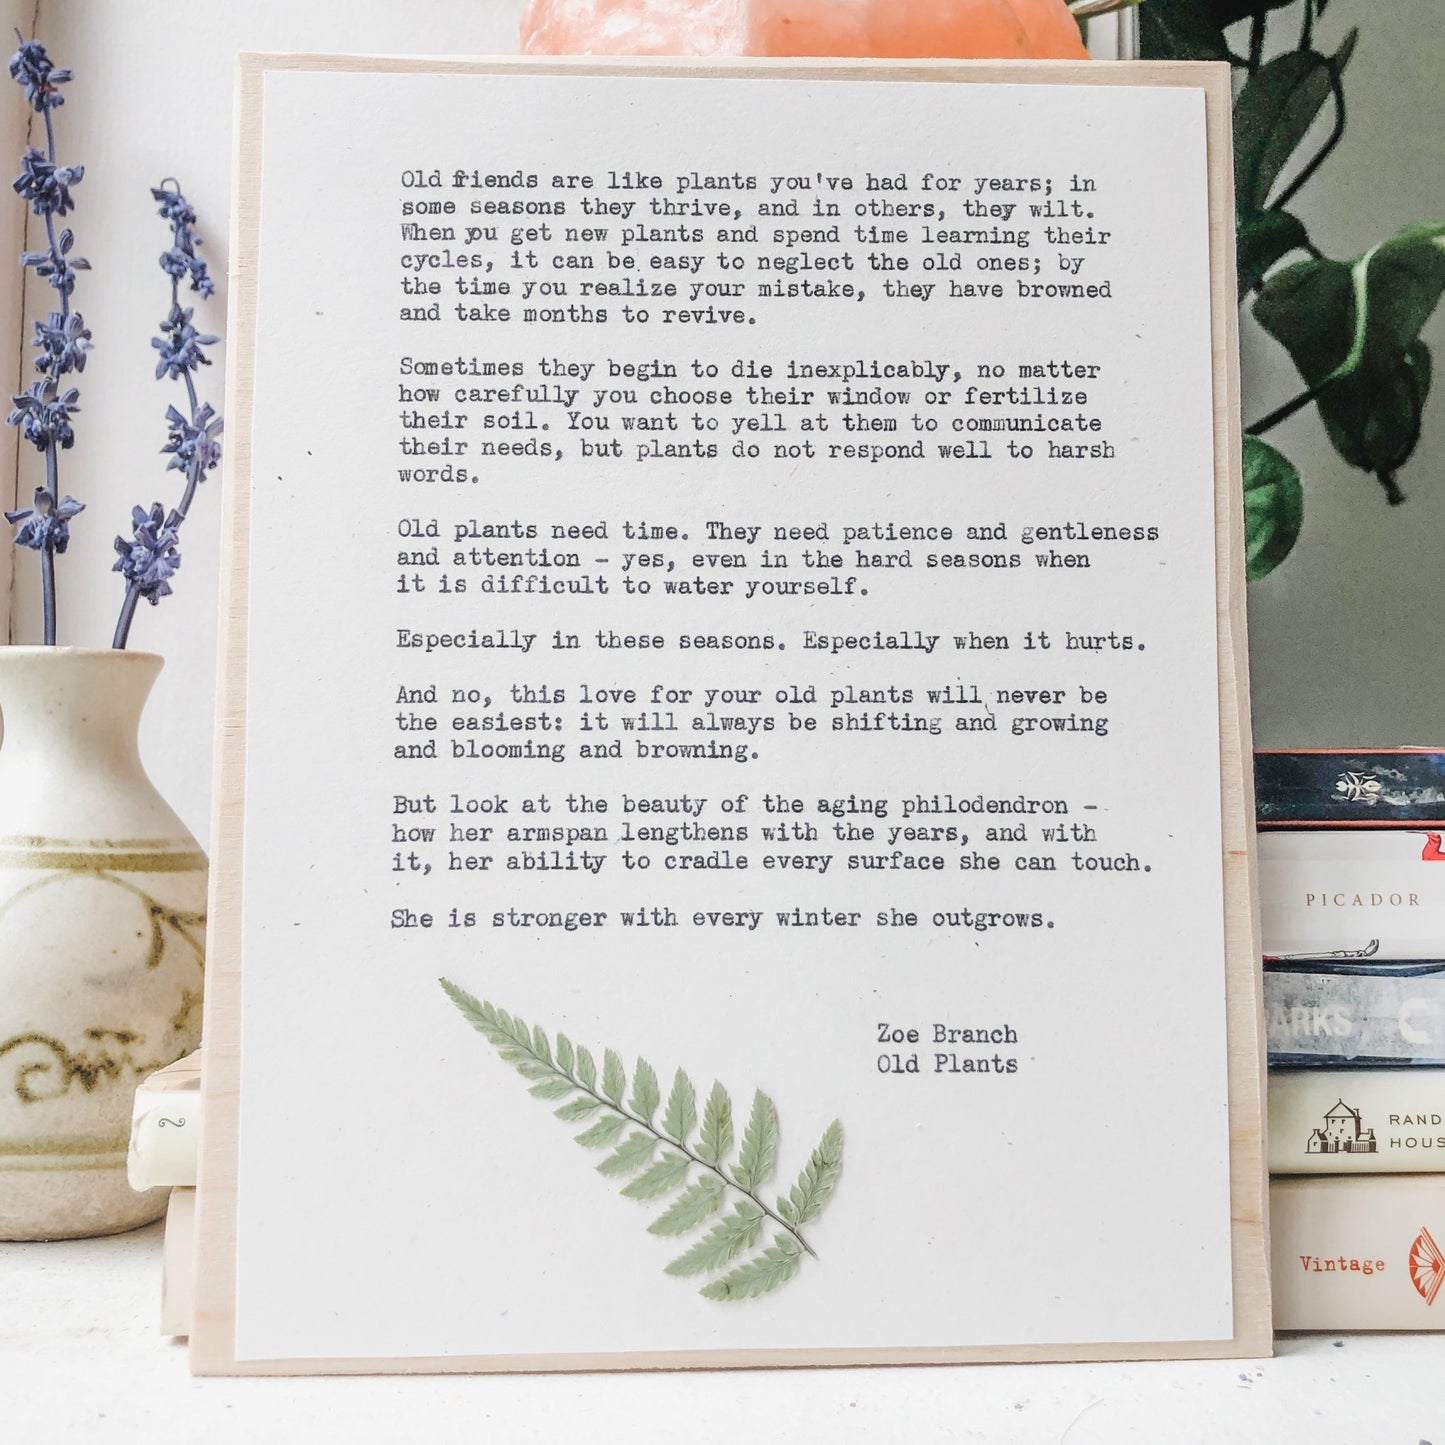 Old friends are like plants you've had for years; in
some seasons they thrive, and in others, they wilt.
When you get new plants and spend time learning their
cycles, it can be easy to neglect the old ones; by
the time you realize your mistake, they have browned
and take months to revive.
Sometimes they begin to die inexplicably, no matter
how carefully you choose their window or fertilize
their soil. You want to yell at them to communicate
their needs, but plants do not respond well to harsh
words.
Old plants need time. They need patience and gentleness
and attention - yes, even in the hard seasons when
it is difficult to water yourself.
Especially in these seasons. Especially when it hurts.
And no, this love for your old plants will never be
the easiest: it will always be shifting and growing
and blooming and browning.
But look at the beauty of the aging philodendron -
how her armspan lengthens with the years, and with
it, her ability to cradle every surface she can touch.
She is stronger with every winter she outgrows.
Zoe Branch
Old Plants
PICADOR
ARKS
RAND
HOUS
Vintage